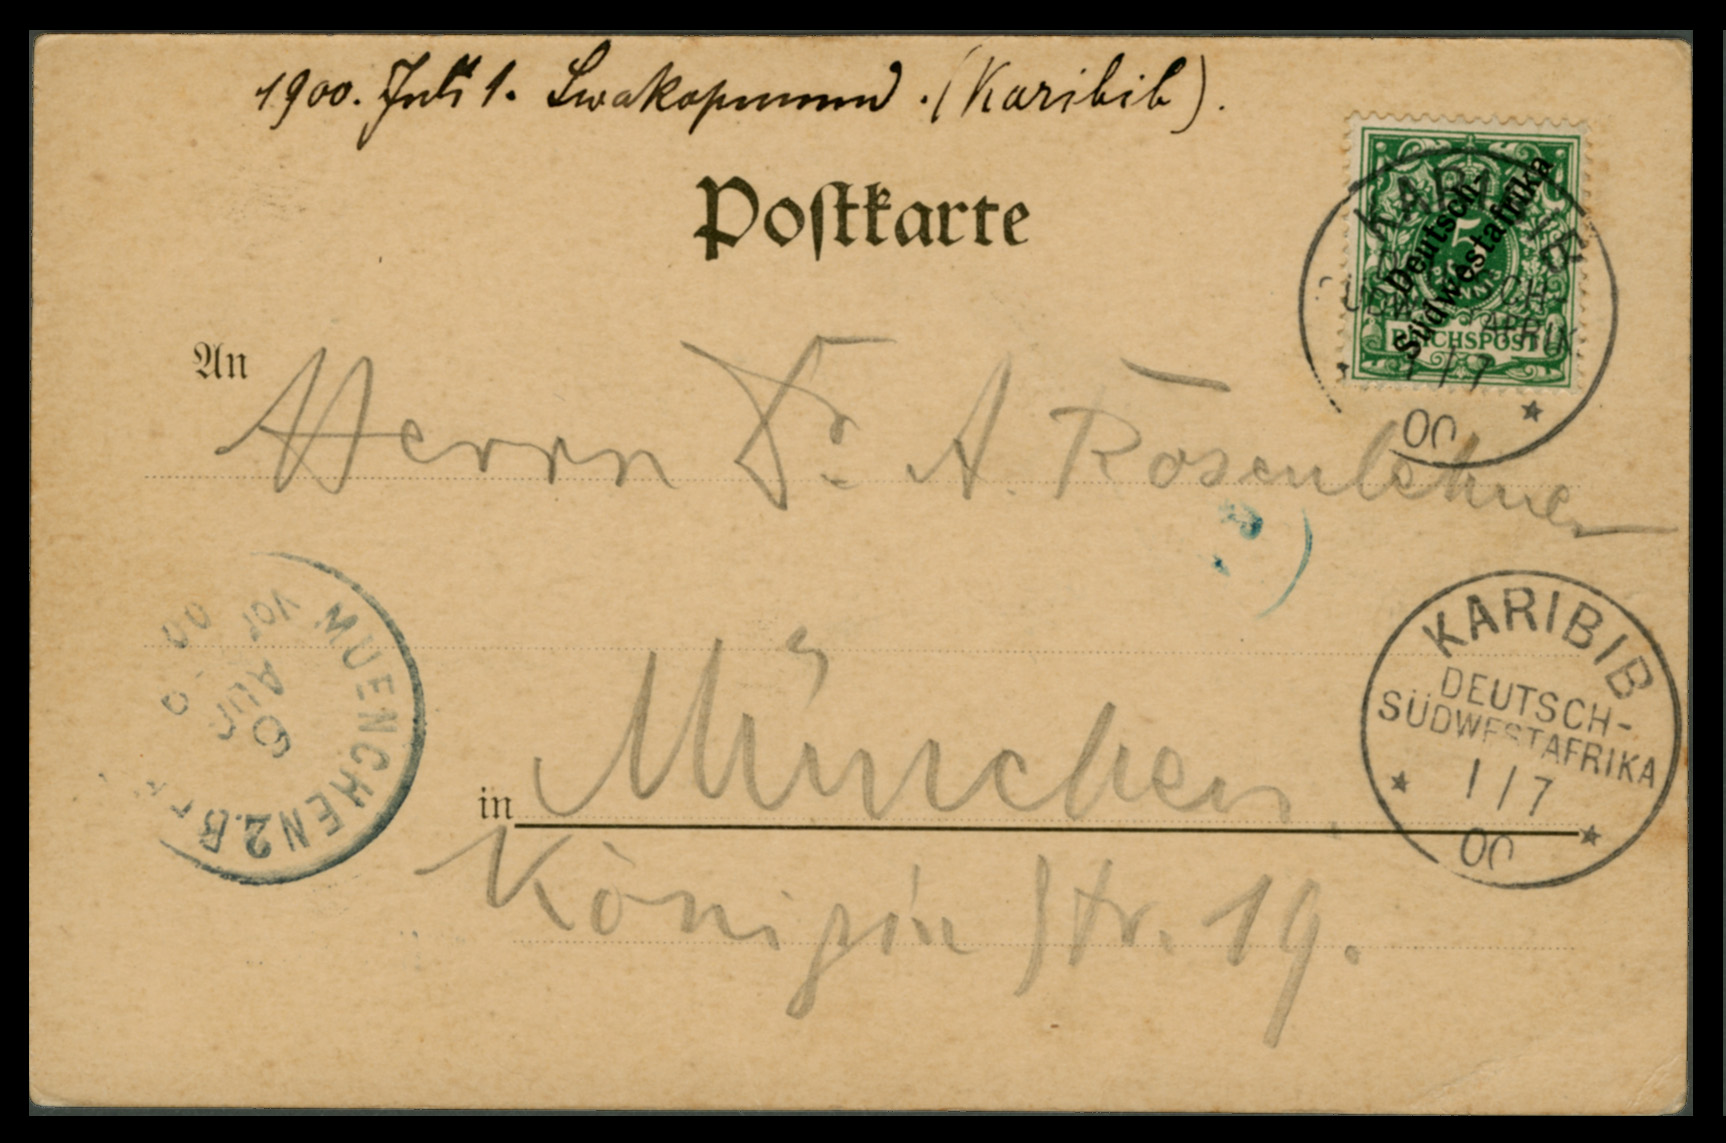 1900. Juli 1. Swakopmund. (Karibib).
Postkarte
Deutsch-
Südwestafrika
5
REICHSPOST
KARIBIB
1/7
00
An
Herrn Dr. A. Rosenlehner
KARIBIB
DEUTSCH-
SÜDWESTAFRIKA
1/7
00
MUENCHEN 2. B
6
AUG
VOR
00
in München.
Königinstr. 19.